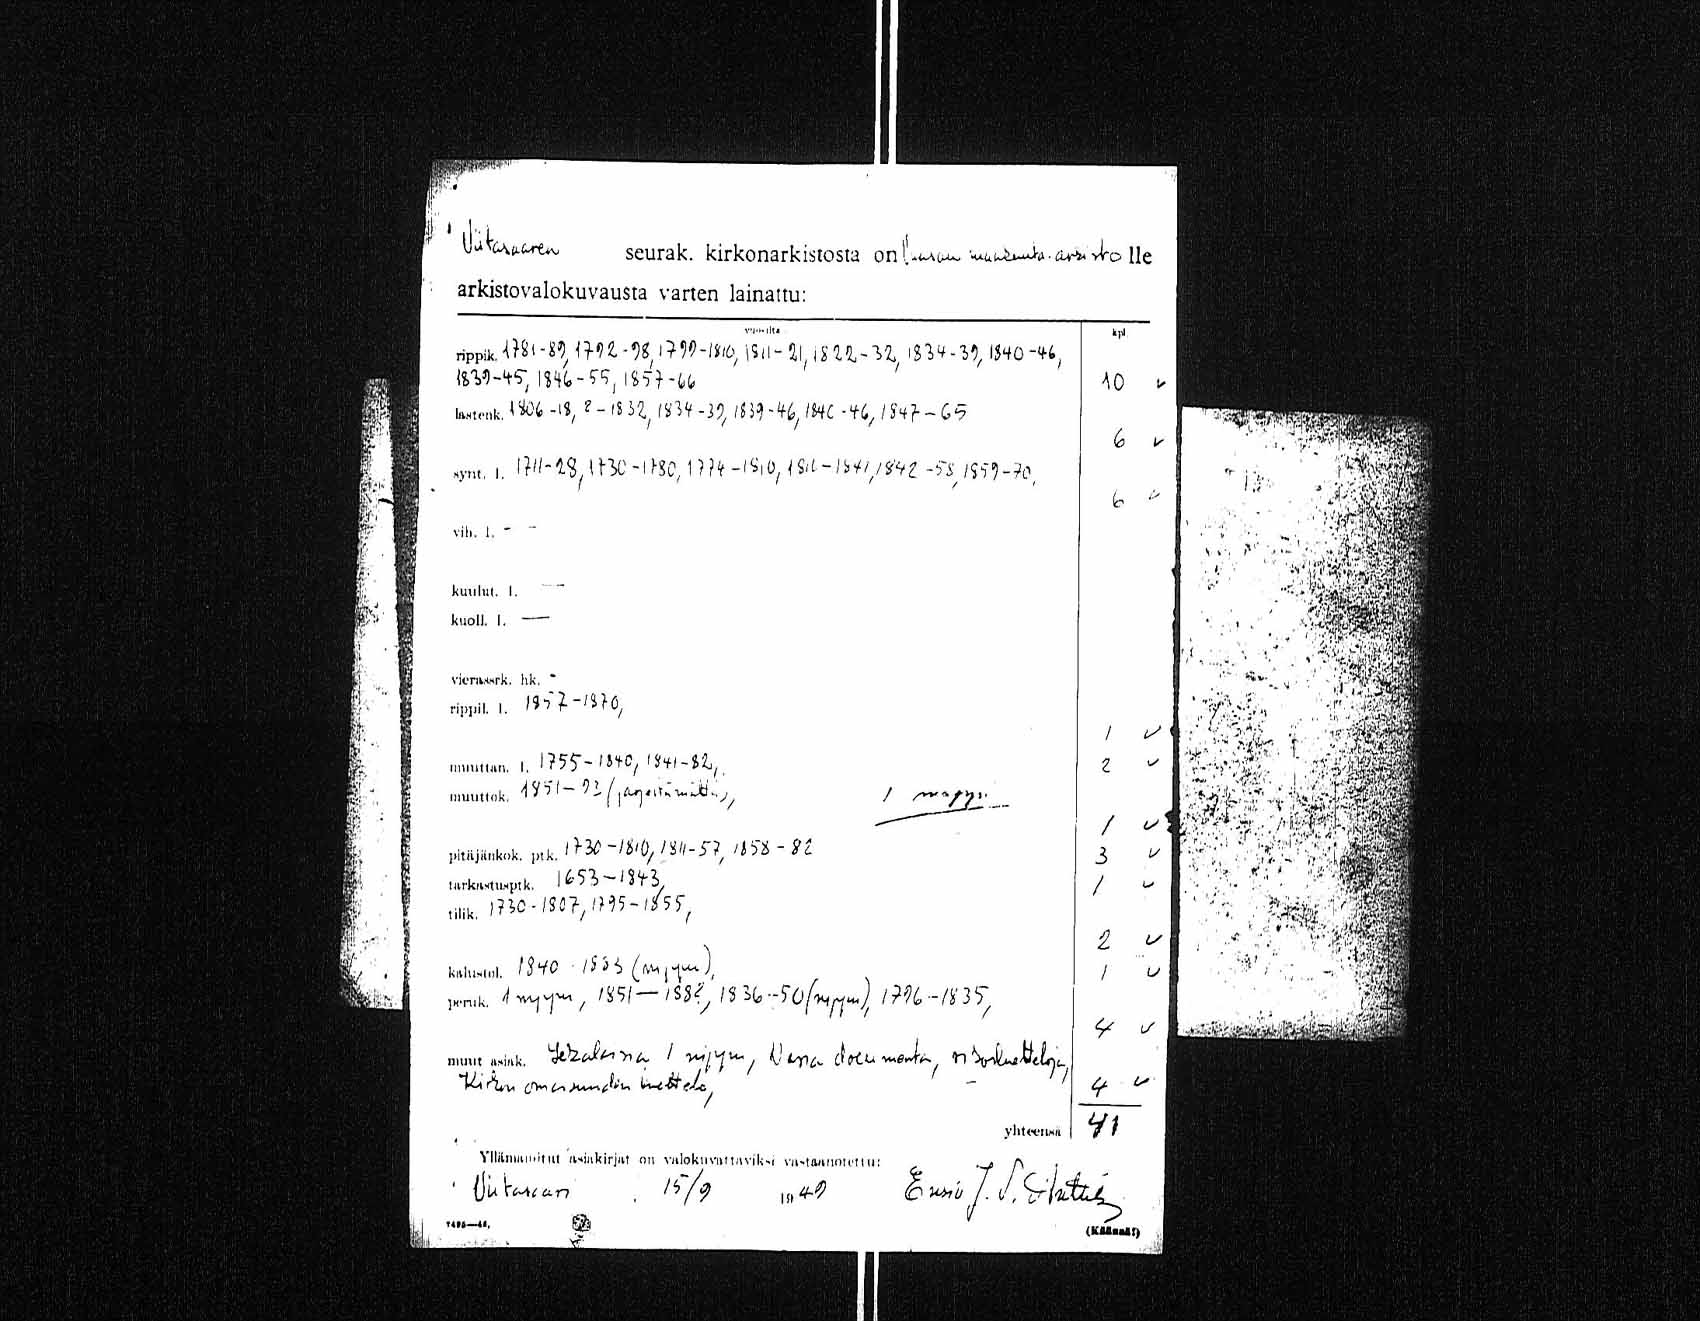 Viitasaaren seurak. kirkonarkistosta on Vaasan maakunta-arkistolle
arkistovalokuvausta varten lainattu:
vuosilta kpl
rippik. 1781-89, 1792-98, 1799-1810, 1811-21, 1822-32, 1834-39, 1840-46,
1839-45, 1846-55, 1857-66 10
lastenk. 1806-18, ?-1832, 1834-39, 1839-46, 1840-46, 1847-65
6
synt. l. 1711-28, 1730-1780, 1774-1810, 1811-1841, 1842-58, 1859-70,
6
vih. l. - -
kuulut. l. —
kuoll. l. —
vierassrk. hk. -
rippil. l. 1857-1870,
1
muuttan. l. 1755-1840, 1841-82, 2
muuttok. 1851-93 (järjestämättä), 1 nippu
1
pitäjänkok. ptk. 1730-1810, 1811-57, 1858-82 3
tarkastusptk. 1653-1843, 1
tilik. 1730-1807, 1795-1855,
2
kalustol. 1840-1883 (nippu), 1
peruk. 1 nippu, 1851-188?, 1836-50 (nippu), 1796-1835,
4
muut asiak. Sekalaisia 1 nippu, Varia documenta,
Kirkon omaisuuden luettelo, 4
yhteensä 41
Yllämainitut asiakirjat on valokuvattaviksi vastaanotettu:
Viitasaari 15/9 1949 Ensio J.
7495—48.
(Käännä!)